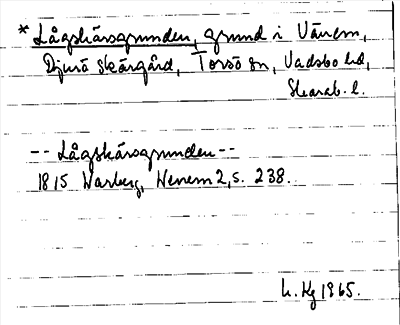 * Lågskärsgrunden, grund i Vänern,
Djurö skärgård, Torsö sn, Vadsbo hd,
Skarab. l.
-- Lågskärsgrunden --
1815 Warberg, Wenern 2, s. 238.
1965.